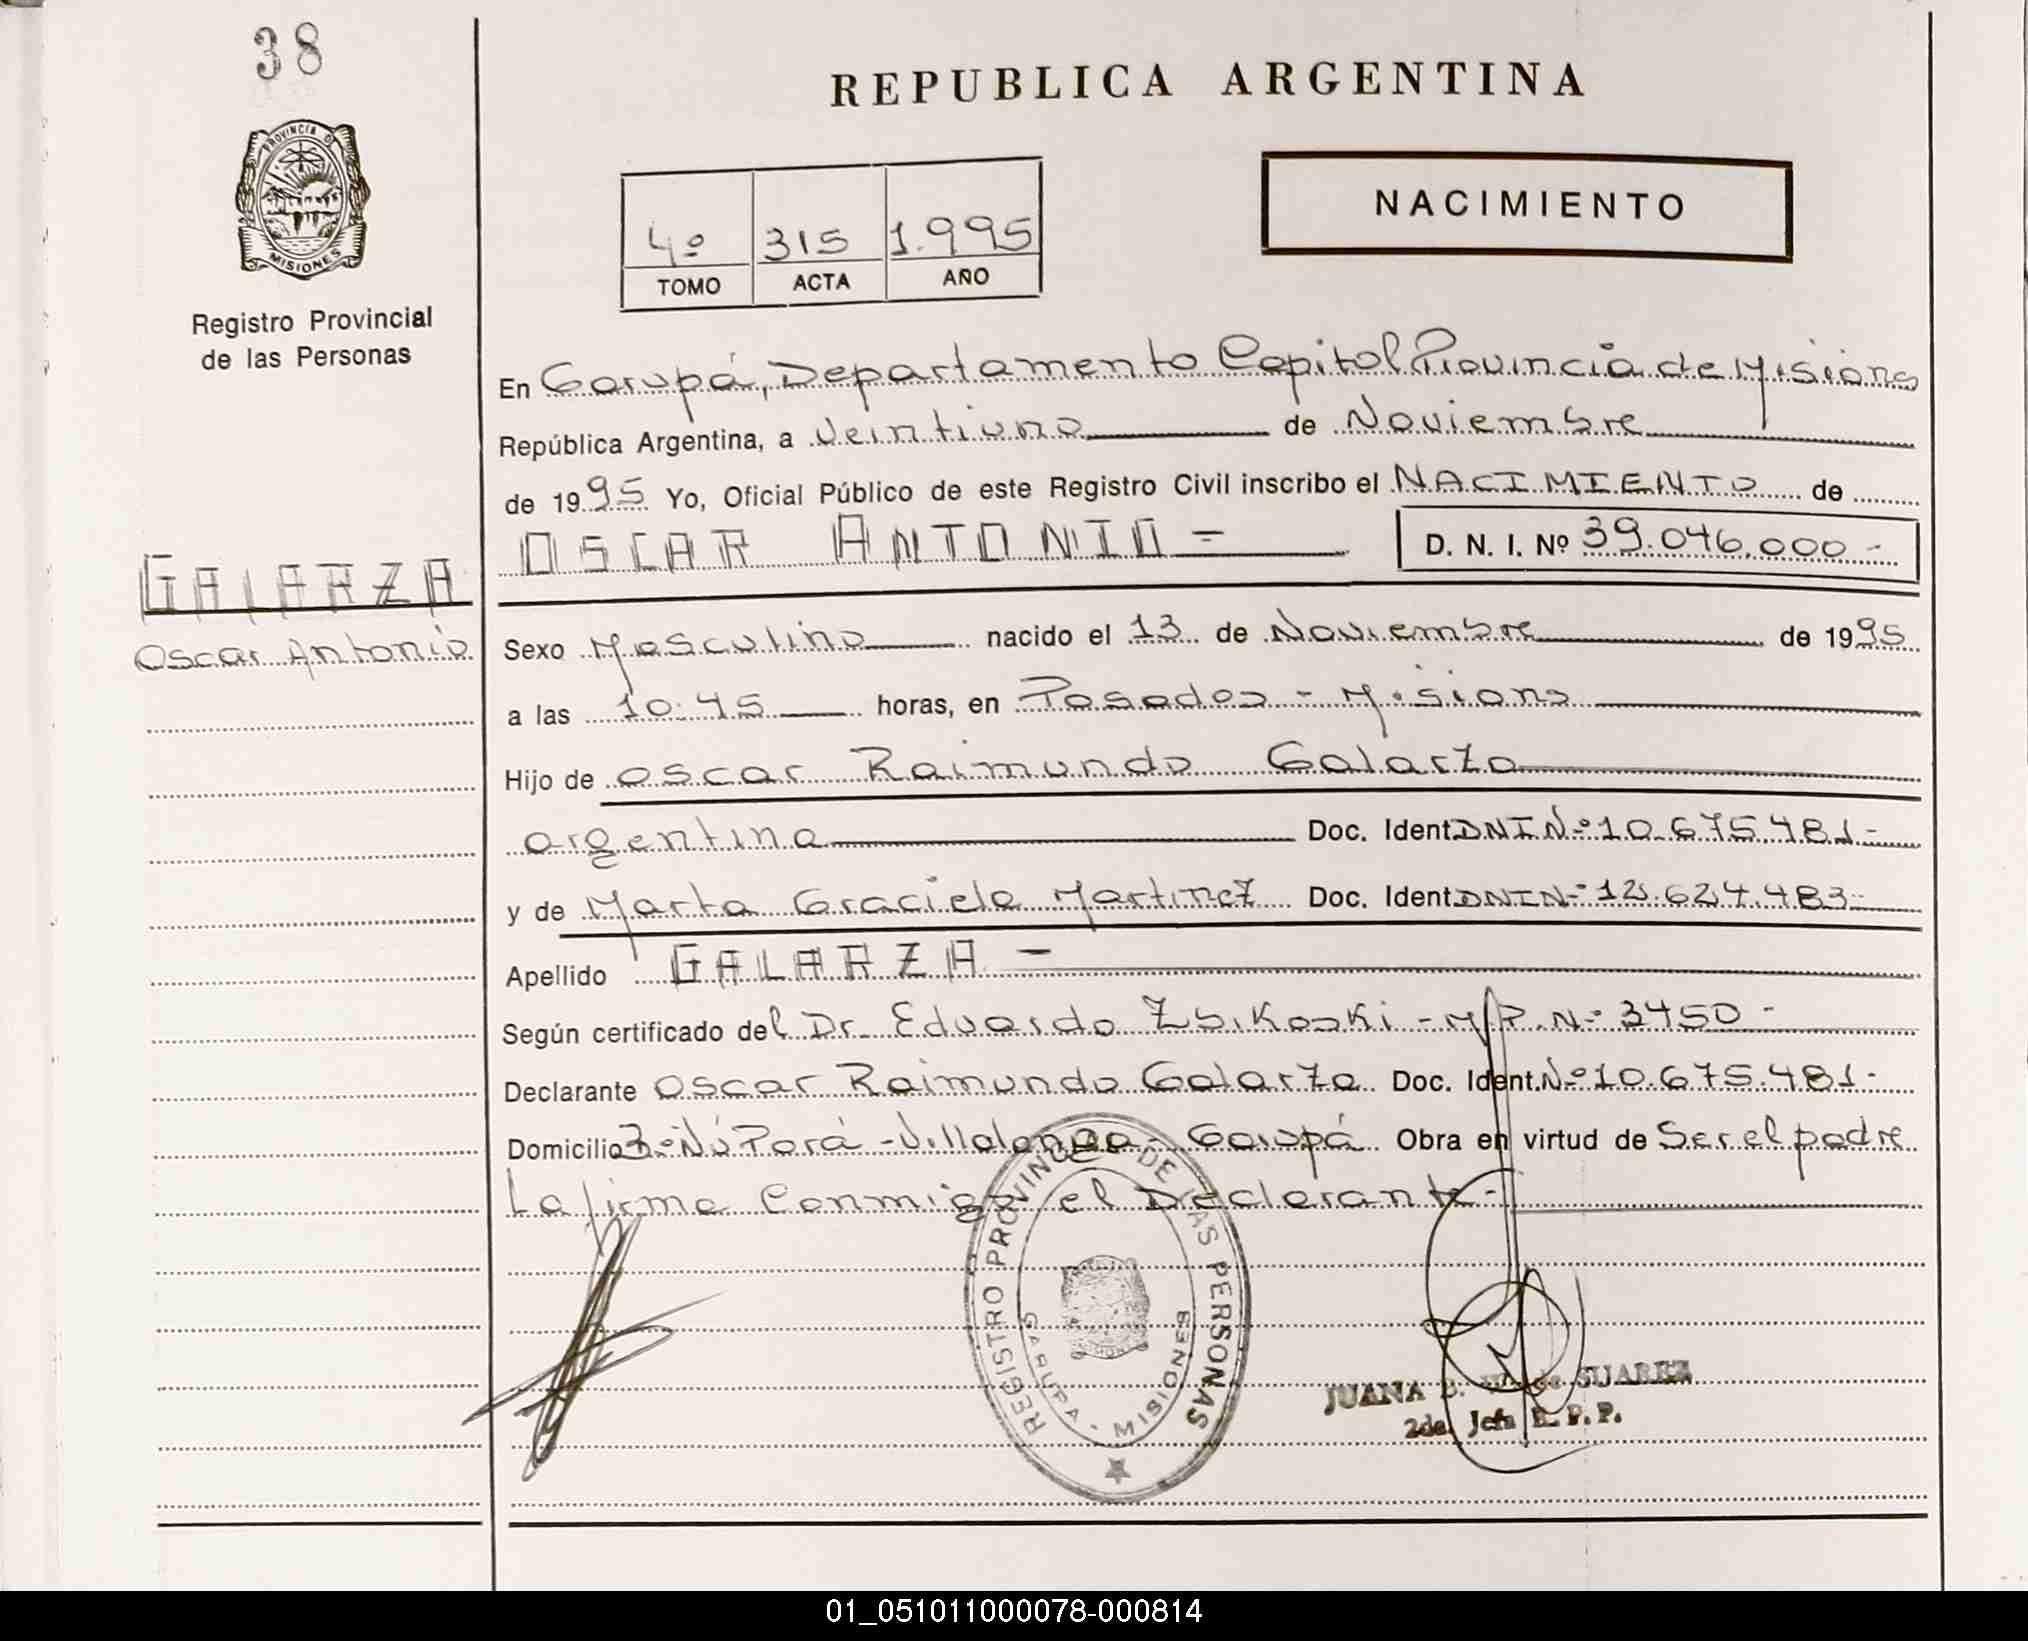 38
REPUBLICA ARGENTINA
PROVINCIA D
MISIONES
NACIMIENTO
4º 315 1.995
TOMO ACTA AÑO
Registro Provincial
de las Personas
En Garupá, Departamento Capital Provincia de Misiones
República Argentina, a Veintiuno de Noviembre
de 1995 Yo, Oficial Público de este Registro Civil inscribo el NACIMIENTO de
OSCAR ANTONIO - D. N. I. Nº 39.046.000 -
GALARZA
Oscar Antonio
Sexo Masculino nacido el 13 de Noviembre de 1995
a las 10:45 horas, en Posadas - Misiones
Hijo de Oscar Raimundo Galarza
argentina Doc. Ident. DNI Nº 10.675.481-
y de Marta Graciela Martinez Doc. Ident. DNI Nº 12.624.483-
Apellido GALARZA -
Según certificado del Dr. Eduardo - M.P. Nº 3450 -
Declarante Oscar Raimundo Galarza Doc. Ident. Nº 10.675.481-
Domicilio Bº Ñú Porá - Villalonga - Garupá Obra en virtud de Ser el padre
La firma Conmigo el Declarante -
REGISTRO PROVINCIAL DE LAS PERSONAS
GARUPA - MISIONES
JUANA B. de SUAREZ
2da. Jefa R. P. P.
01_051011000078-000814